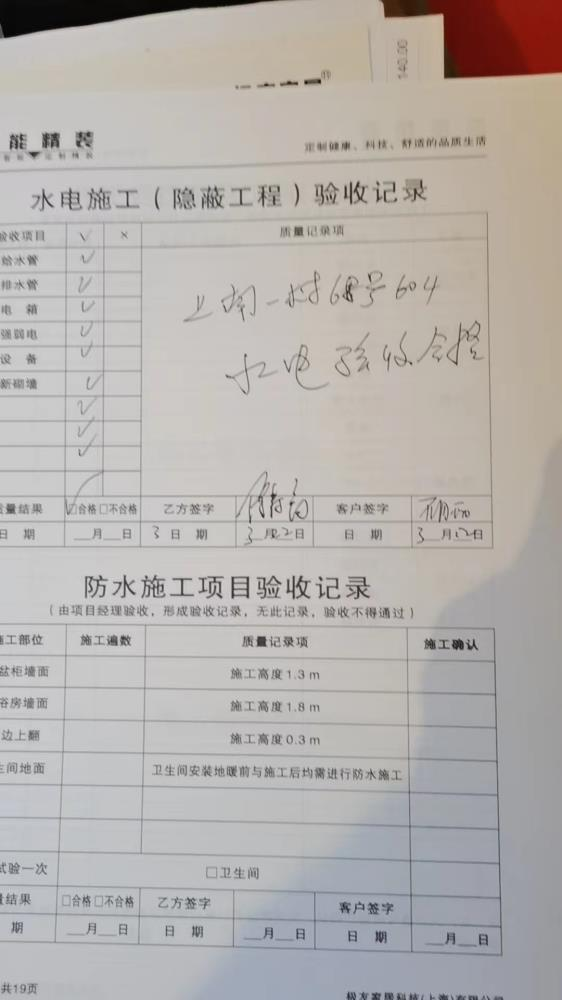 140.00
能精装
定制健康、科技、舒适的品质生活
水电施工（隐蔽工程）验收记录
验收项目 √ × 质量记录项
给水管 √
排水管 √
电 箱 √
强弱电 √
设 备 √
新砌墙 √
√
√
√
上南一村68号604
水电验收合格
质量结果 √ □合格□不合格 乙方签字 客户签字
日 期 __月__日 3 日 期 3月12日 日 期 3月12日
防水施工项目验收记录
（由项目经理验收，形成验收记录，无此记录，验收不得通过）
施工部位 施工遍数 质量记录项 施工确认
盆柜墙面 施工高度1.3 m
浴房墙面 施工高度1.8 m
边上翻 施工高度0.3 m
生间地面 卫生间安装地暖前与施工后均需进行防水施工
试验一次 □卫生间
量结果 □合格□不合格 乙方签字 客户签字
期 __月__日 日 期 __月__日 日 期 __月__日
共19页 极友家居科技(上海)有限公司